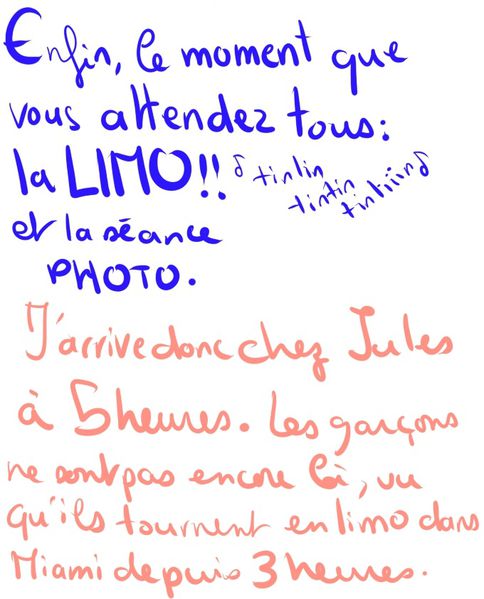 Enfin, le moment que
vous attendez tous:
la LIMO!! ♪ tintin
tintin
tintiiin♪
et la séance
PHOTO.
J'arrive donc chez Jules
à 5 heures. Les garçons
ne sont pas encore là, vu
qu'ils tournent en limo dans
Miami depuis 3 heures.